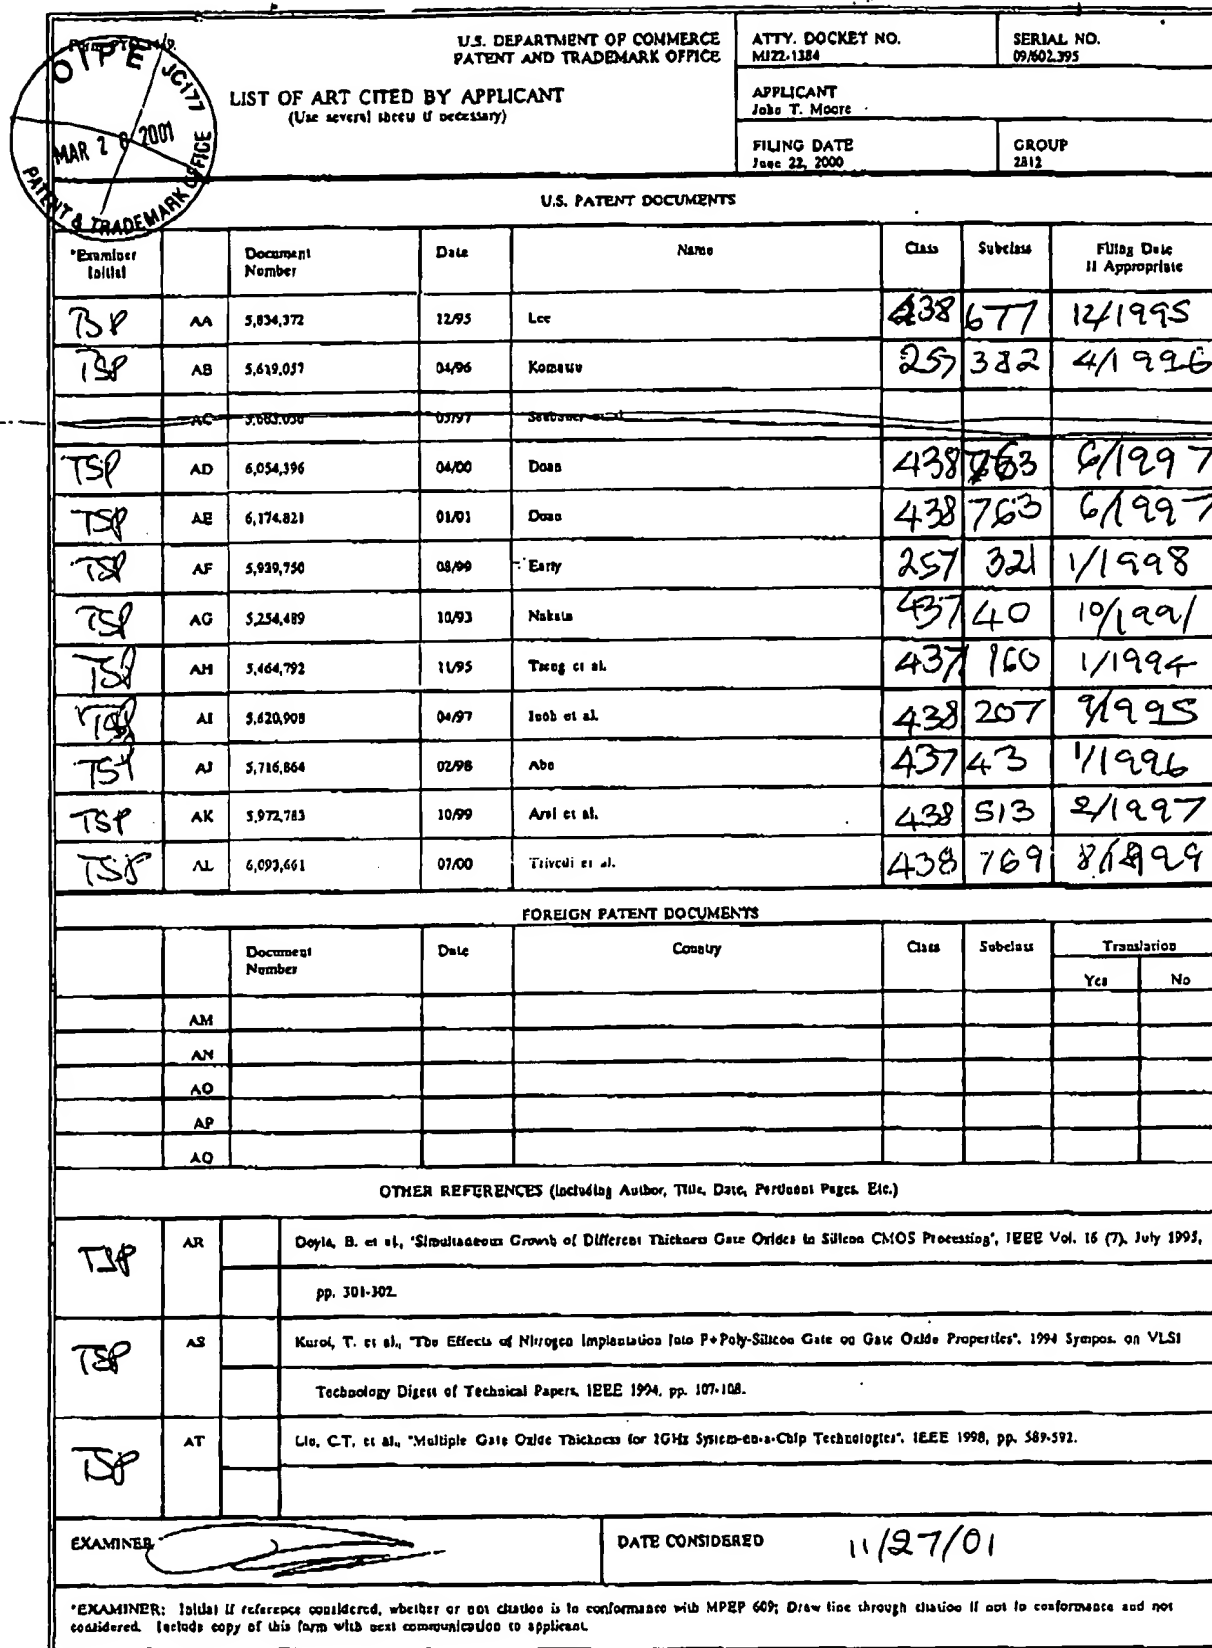 OIPE JC177
MAR 2 8 2001
PATENT & TRADEMARK OFFICE
U.S. DEPARTMENT OF COMMERCE
PATENT AND TRADEMARK OFFICE
LIST OF ART CITED BY APPLICANT
(Use several sheets if necessary)
ATTY. DOCKET NO.
MI22-1384
SERIAL NO.
09/602,395
APPLICANT
John T. Moore
FILING DATE
June 22, 2000
GROUP
2812
U.S. PATENT DOCUMENTS
*Examiner Initial Document Number Date Name Class Subclass Filing Date If Appropriate
TSP AA 5,834,372 12/95 Lee 438 677 12/1995
TSP AB 5,619,057 04/96 Komatsu 257 382 4/1996
AC 03/97
TSP AD 6,054,396 04/00 Doan 438 763 6/1997
TSP AE 6,174,821 01/01 Doan 438 763 6/1997
TSP AF 5,939,750 08/99 Early 257 321 1/1998
TSP AG 5,254,489 10/93 Nakata 437 40 10/1991
TSP AH 5,464,792 11/95 Tseng et al. 437 160 1/1994
TSP AI 5,620,908 04/97 Inoh et al. 438 207 9/1995
TSP AJ 5,716,864 02/98 Abe 437 43 1/1996
TSP AK 5,972,783 10/99 Arai et al. 438 513 2/1997
TSP AL 6,093,661 07/00 Trivedi et al. 438 769 8/1999
FOREIGN PATENT DOCUMENTS
Document Number Date Country Class Subclass Translation
Yes No
AM
AN
AO
AP
AQ
OTHER REFERENCES (Including Author, Title, Date, Pertinent Pages, Etc.)
TSP AR Doyle, B. et al., "Simultaneous Growth of Different Thickness Gate Oxides in Silicon CMOS Processing", IEEE Vol. 16 (7), July 1995,
pp. 301-302.
TSP AS Kuroi, T. et al., "The Effects of Nitrogen Implantation Into P+Poly-Silicon Gate on Gate Oxide Properties", 1994 Sympos. on VLSI
Technology Digest of Technical Papers, IEEE 1994, pp. 107-108.
TSP AT Liu, C.T. et al., "Multiple Gate Oxide Thickness for 2GHz System-on-a-Chip Technologies", IEEE 1998, pp. 589-592.
EXAMINER
DATE CONSIDERED 11/27/01
*EXAMINER: Initial if reference considered, whether or not citation is in conformance with MPEP 609; Draw line through citation if not in conformance and not
considered. Include copy of this form with next communication to applicant.